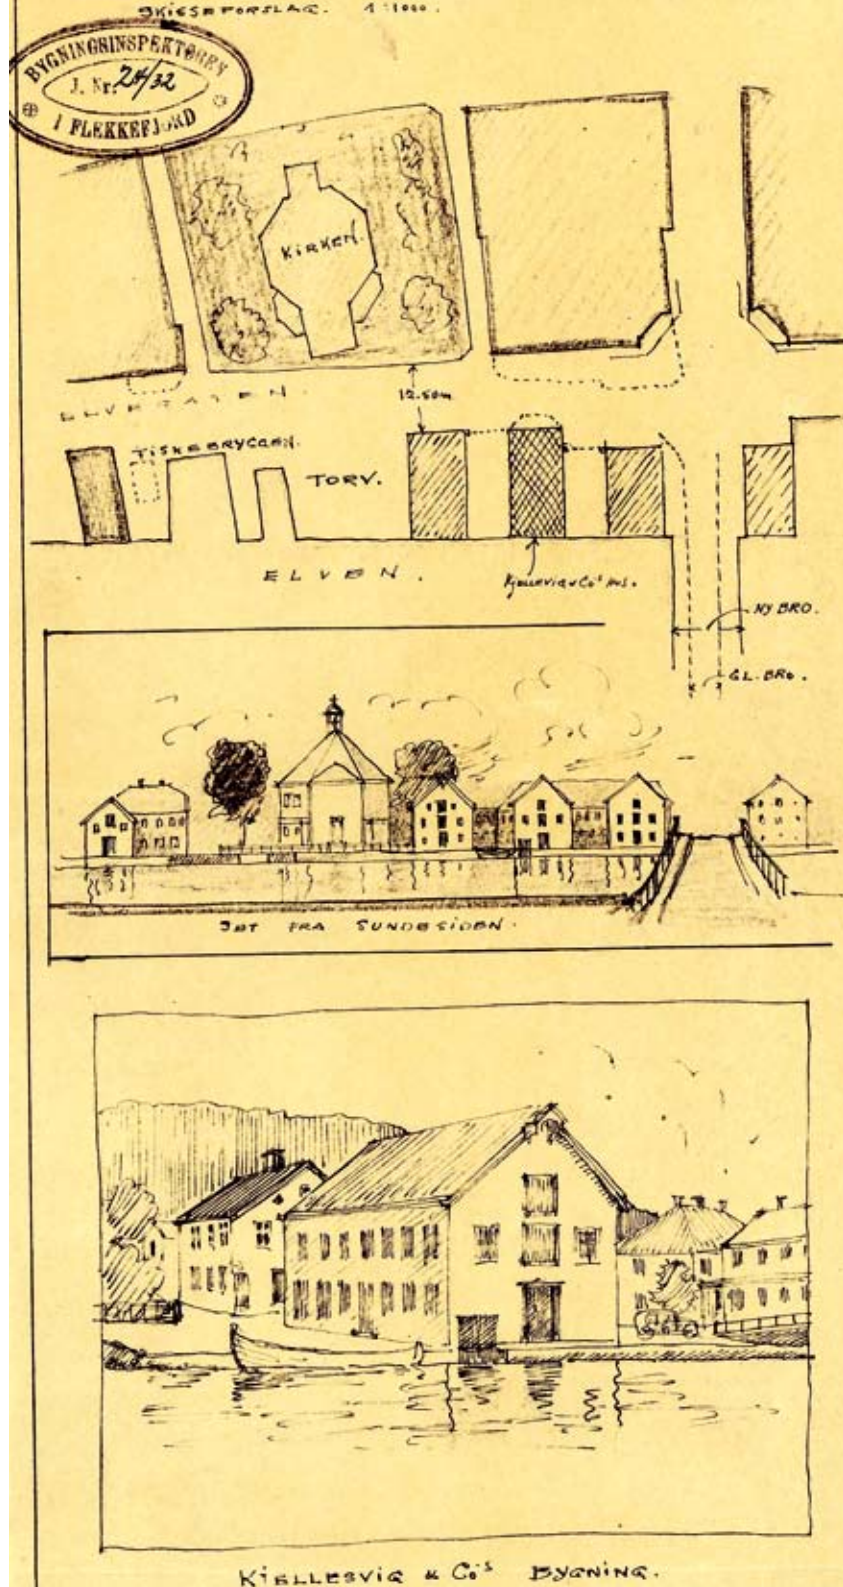 SKISSEFORSLAG. 1:1000.
BYGNINGSINSPEKTØREN
J. Nr. 24/32
I FLEKKEFJORD
KIRKEN.
ELVEGATEN.
12.50m
FISKEBRYGGEN.
TORV.
ELVEN.
Kjellesvig & Co's hus.
NY BRO.
GL. BRO.
SET FRA SUNDESIDEN.
KJELLESVIG & Co's BYGNING.